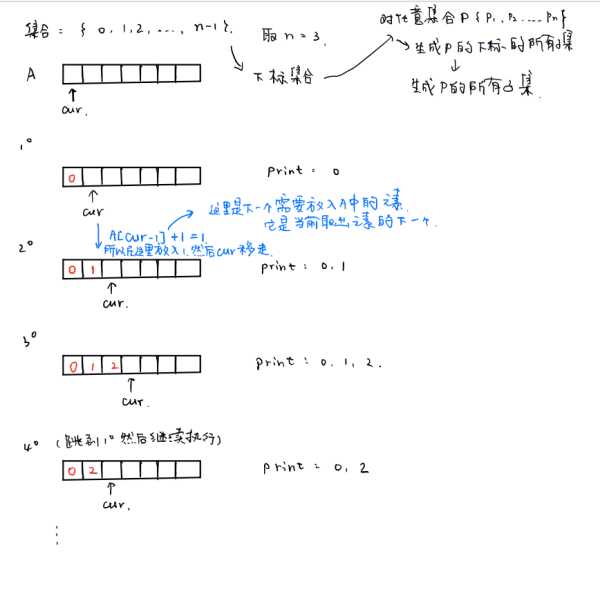 集合 = { 0, 1, 2, ..., n-1 }.
取 n = 3.
对任意集合 P { P₁, P₂ .... Pn }
生成 P 的下标的所有子集
下标集合
生成 P 的所有子集.
A
cur.
1°
0
print = 0
cur
这里是下一个需要放入A中的元素.
它是当前取出元素的下一个.
A[cur-1] + 1 = 1.
所以在这里放入1. 然后cur移走.
2°
0 1
print : 0, 1
cur.
3°
0 1 2
print : 0, 1, 2.
cur.
4° (跳到1° 然后继续执行)
0 2
print = 0, 2
cur.